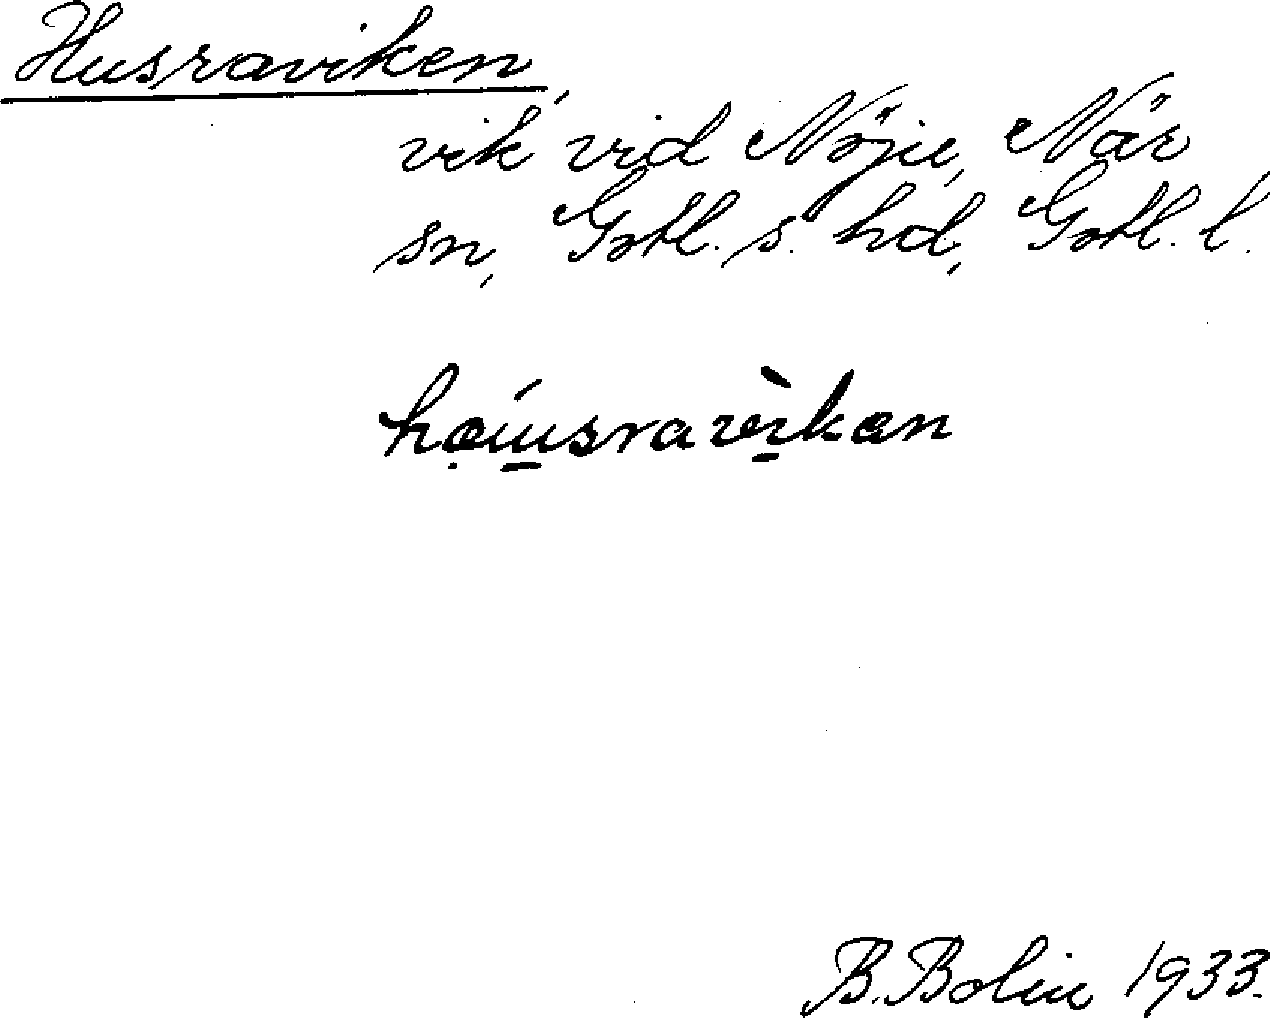 Husraviken,
vik vid Nöjie, När
sn, Gotl. s. hd, Gotl. l.
B. Bolin 1933.